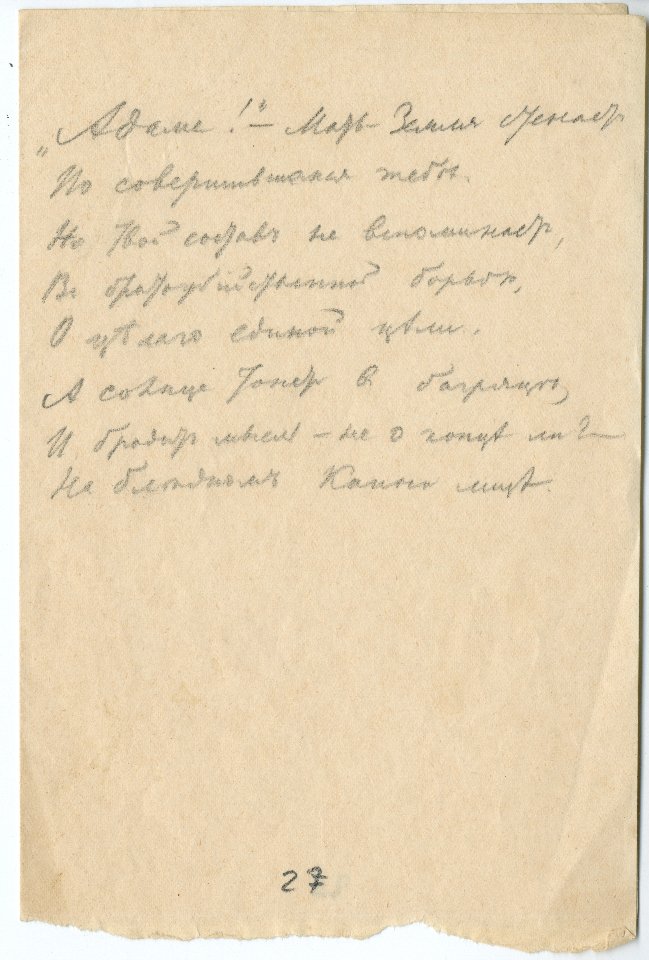 „Адаме!“ — Мать-Земля стенает
По совершившемся тебѣ.
Но твой составъ не вспоминает,
Въ братоубійственной борьбѣ,
О цѣлаго единой цѣли.
А солнце тонет в багрецѣ,
И бродит мысль — не о концѣ ли? —
На блѣдномъ Каина лицѣ.
27